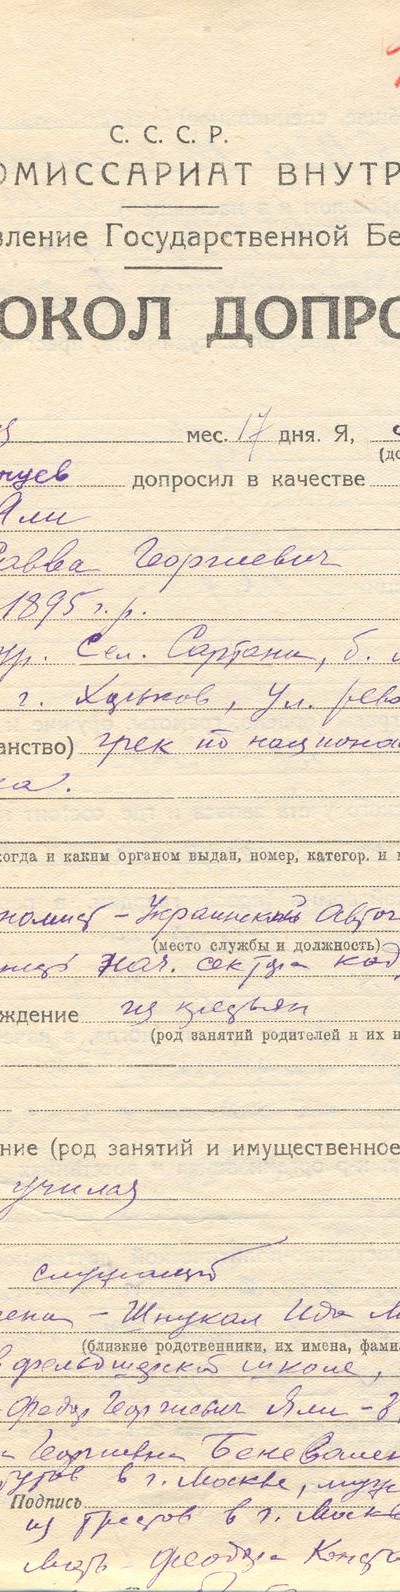 С. С. С. Р.
ОМИССАРИАТ ВНУТР
вление Государственной Бе
ОКОЛ ДОПРО
мес. 17 дня. Я,
(до
нцев допросил в качестве
Яли
Савва Георгиевич
1895 г. р.
ур. Сел. Сартана, б.
г. Харьков, ул. рево
анство) грек по национа
ка.
когда и каким органом выдан, номер, категор. и
номист – Украинский Автог
(место службы и должность)
нач. сектора кад
ждение из крестьян
(род занятий родителей и их и
ние (род занятий и имущественное
училая
служащий
жена – Шнукал Ида М
(близкие родственники, их имена, фами
в фельдшерской школе,
Федор Георгиевич Яли –
Георгиевна Беневален
в г. Москве, муж
Подпись
из трестов в г. Москв
Мать – Феодора Конста